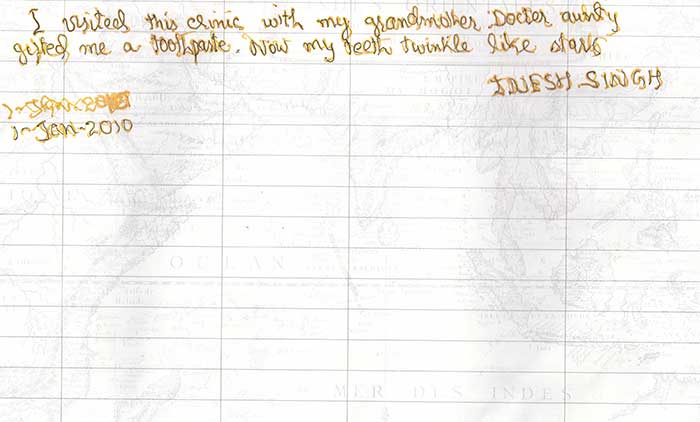 I visited this clinic with my grandmother. Doctor aunty
gifted me a toothpaste. Now my teeth twinkle like stars
INESH SINGH
1-Jan-2010
OCEAN
MER DES INDES